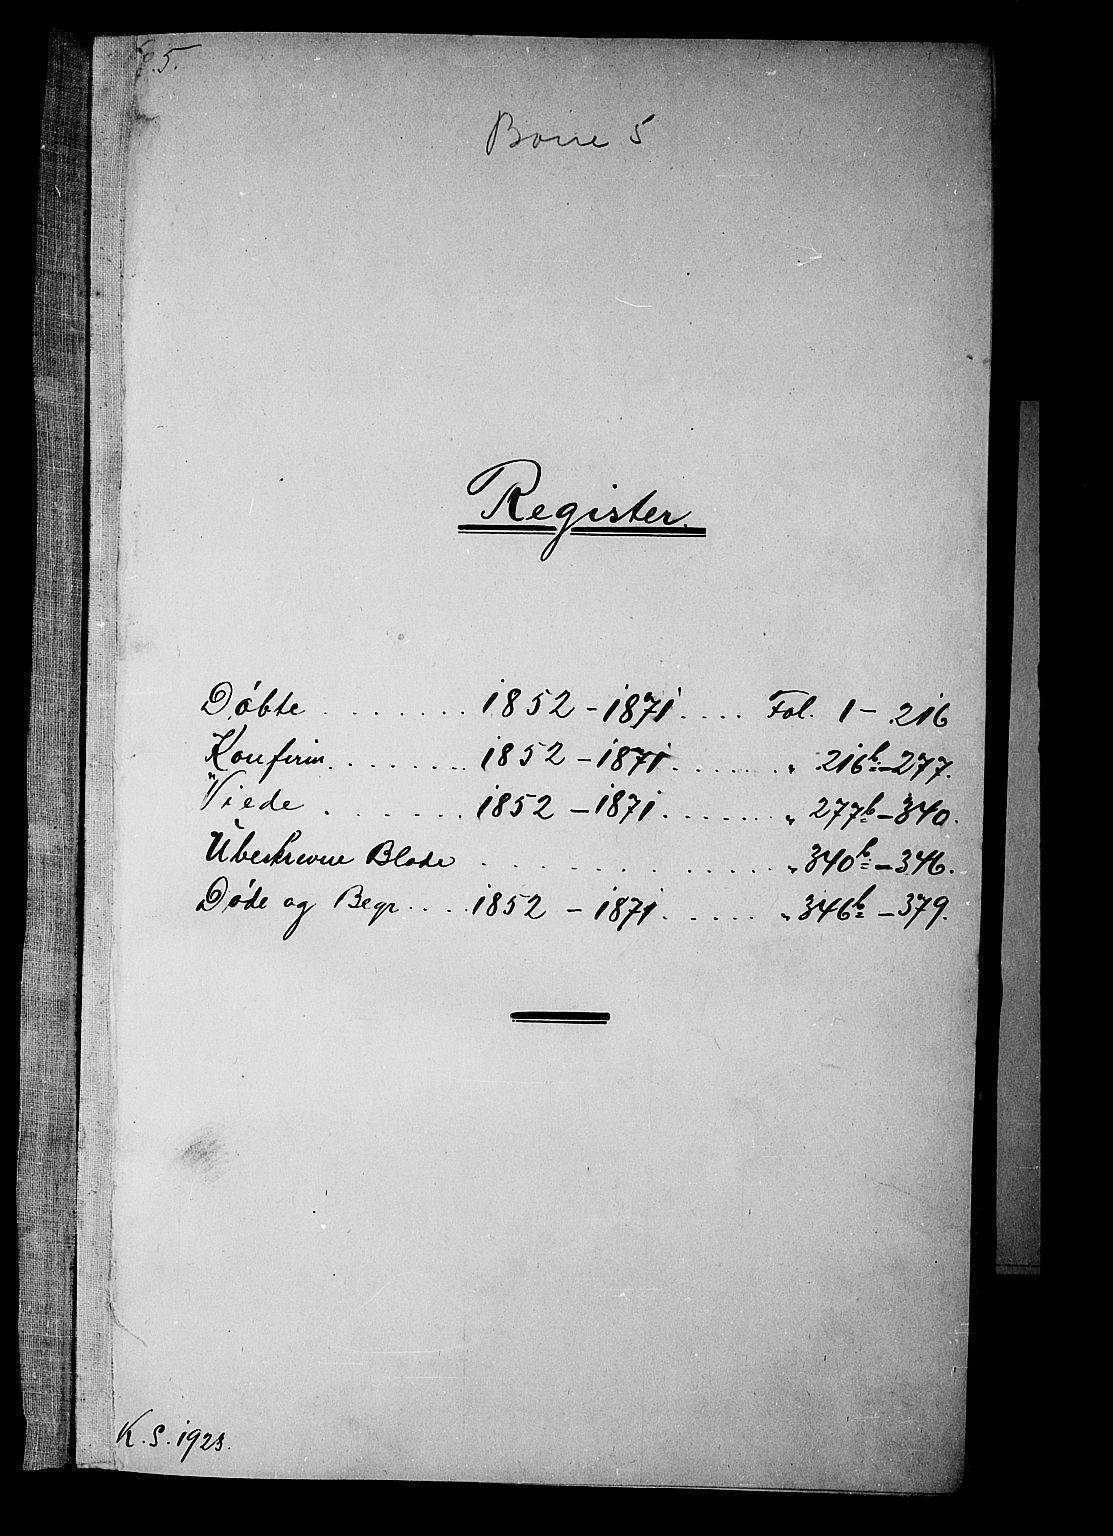 5.
Borre 5
Register.
Døbte ........ 1852 - 1871 .... Fol. 1 - 216
Konfirm. ....... 1852 - 1871 ...... " 216b - 277.
Viede ....... 1852 - 1871 ....... " 277b - 340.
Ubeskrevne Blade ............ " 340b - 346.
Døde og Begr. ... 1852 - 1871 ..... " 346b - 379.
K. S. 1923.